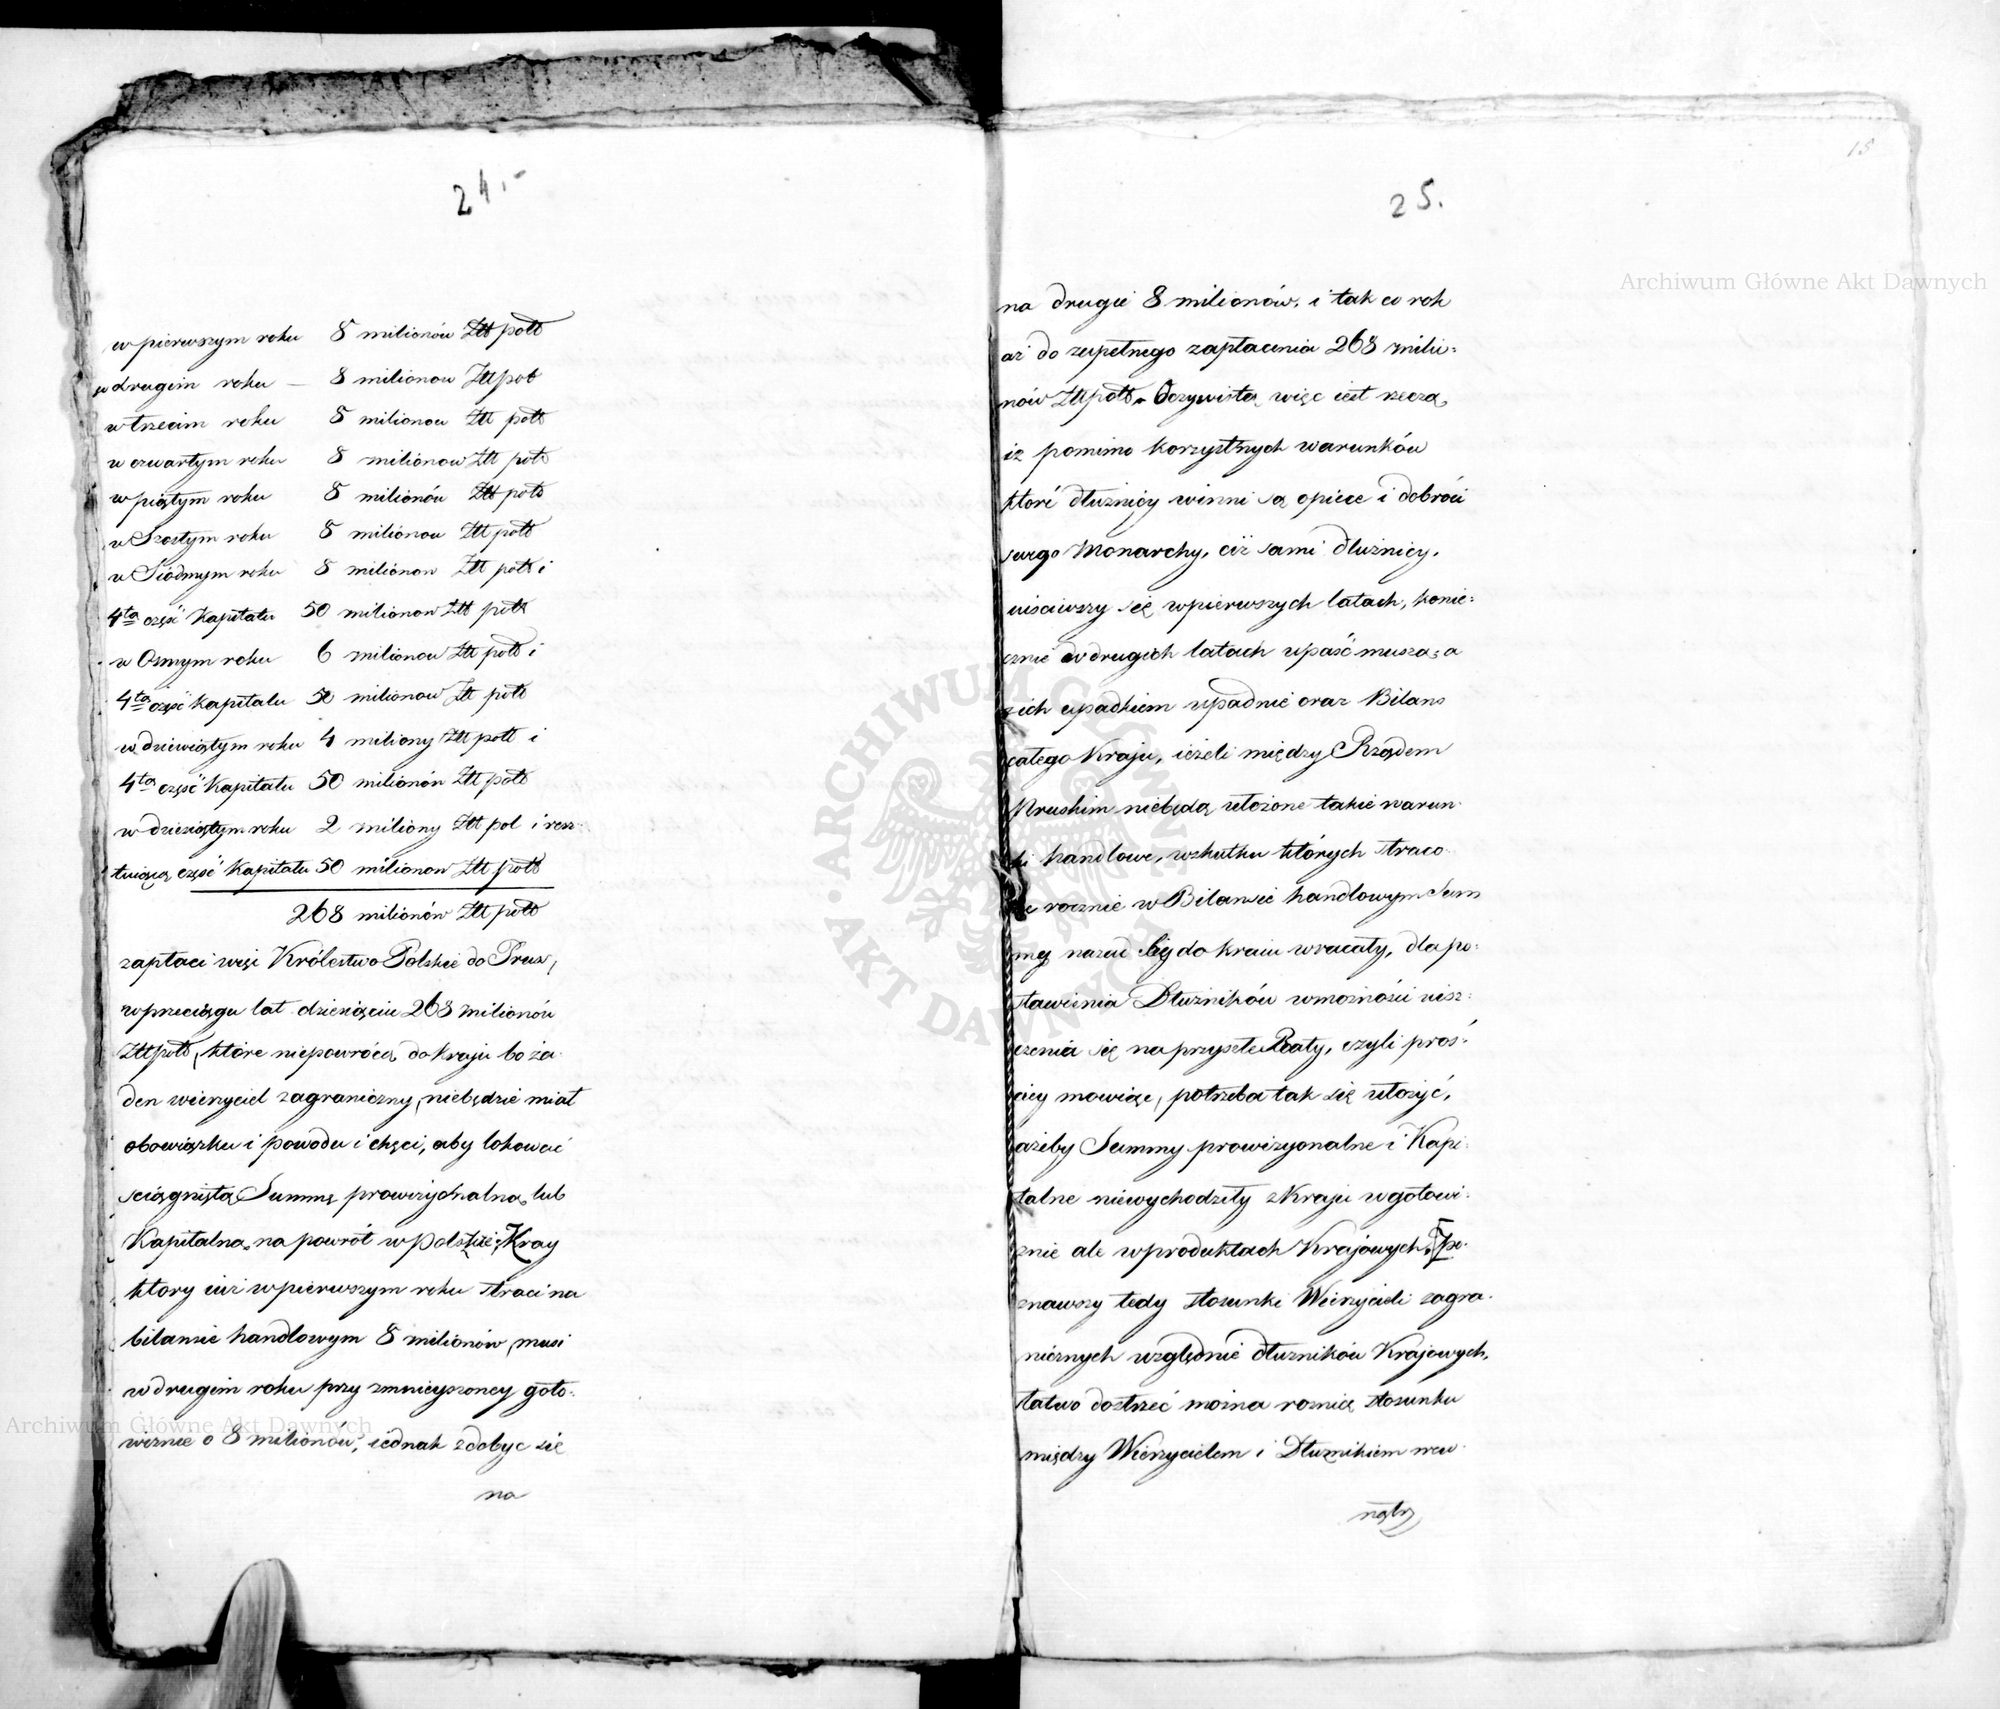 24.-
w pierwszym roku 8 milionów Złł polł
w drugim roku — 8 milionow Złł pol
w trzecim roku 8 milionow Złł polł
w czwartym roku 8 milionow Złł polł
w piątym roku 8 milionów Złł polł
w Szostym roku 8 milionow Złł polł
w Siódmym roku 8 milionow Złł polł i
4ta część Kapitału 50 milionow Złł polł
w Osmym roku 6 milionow Złł polł i
4ta część Kapitału 50 milionow Złł polł
w dziewiątym roku 4 miliony Złł polł i
4ta część Kapitału 50 milionów Złł polł
w dziesiątym roku 2 miliony Złł pol i resz-
tuiącą część Kapitału 50 milionow Złł polł
268 milionów Złł polł
zapłaci więc Królestwo Polskie do Prus,
w przeciągu lat dziesięciu 268 milionów
Złł polł, które niepowrócą do kraju bo ża-
den wierzyciel zagraniczny, niebędzie miał
obowiązku i powodu i chęci, aby lokować
sciągniętą Summę prowizyonalną lub
Kapitalną na powrót w Polskie Kray
ktory iuż w pierwszym roku straci na
bilansie handlowym 8 milionów, musi
w drugim roku przy zmnieyszoney goto-
wiznie o 8 milionow, iednak zdobyc się
na
15
25.
na drugie 8 milionów, i tak co rok
aż do zupełnego zapłacenia 268 milio-
nów Złł polł. Oczywistą więc iest rzeczą,
iż pomimo korzystnych warunków
które dłużnicy winni są opiece i dobroci
swego Monarchy, ciż sami dłużnicy,
uisciwszy się w pierwszych latach, konie-
cznie w drugich latach upaść muszą, a
z ich upadkiem upadnie oraz Bilans
całego Kraju, ieżeli między Rządem
Pruskim niebędą ułożone takie warun-
ki handlowe, wskutku których straco-
ne rocznie w Bilansie handlowym Sum
my nazad się do kraiu wracały, dla po-
stawienia Dłużników w możności uisz-
czenia się na przyszłe Raty, czyli proś-
ciey mowiąc, potrzeba tak się ułożyć,
ażeby Summy prowizyonalne i Kapi-
talne niewychodziły z Kraju w gotowi-
znie ale w produktach Krajowych, po-
znawszy tedy stosunki Wierzycieli zagra-
nicznych względnie dłużników Krajowych,
łatwo dostrzec można roznicę stosunku
między Wierzycielem i Dłużnikiem wew-
nątrz
Archiwum Główne Akt Dawnych
Archiwum Główne Akt Dawnych
ARCHIWUM GŁÓWNE AKT DAWNYCH